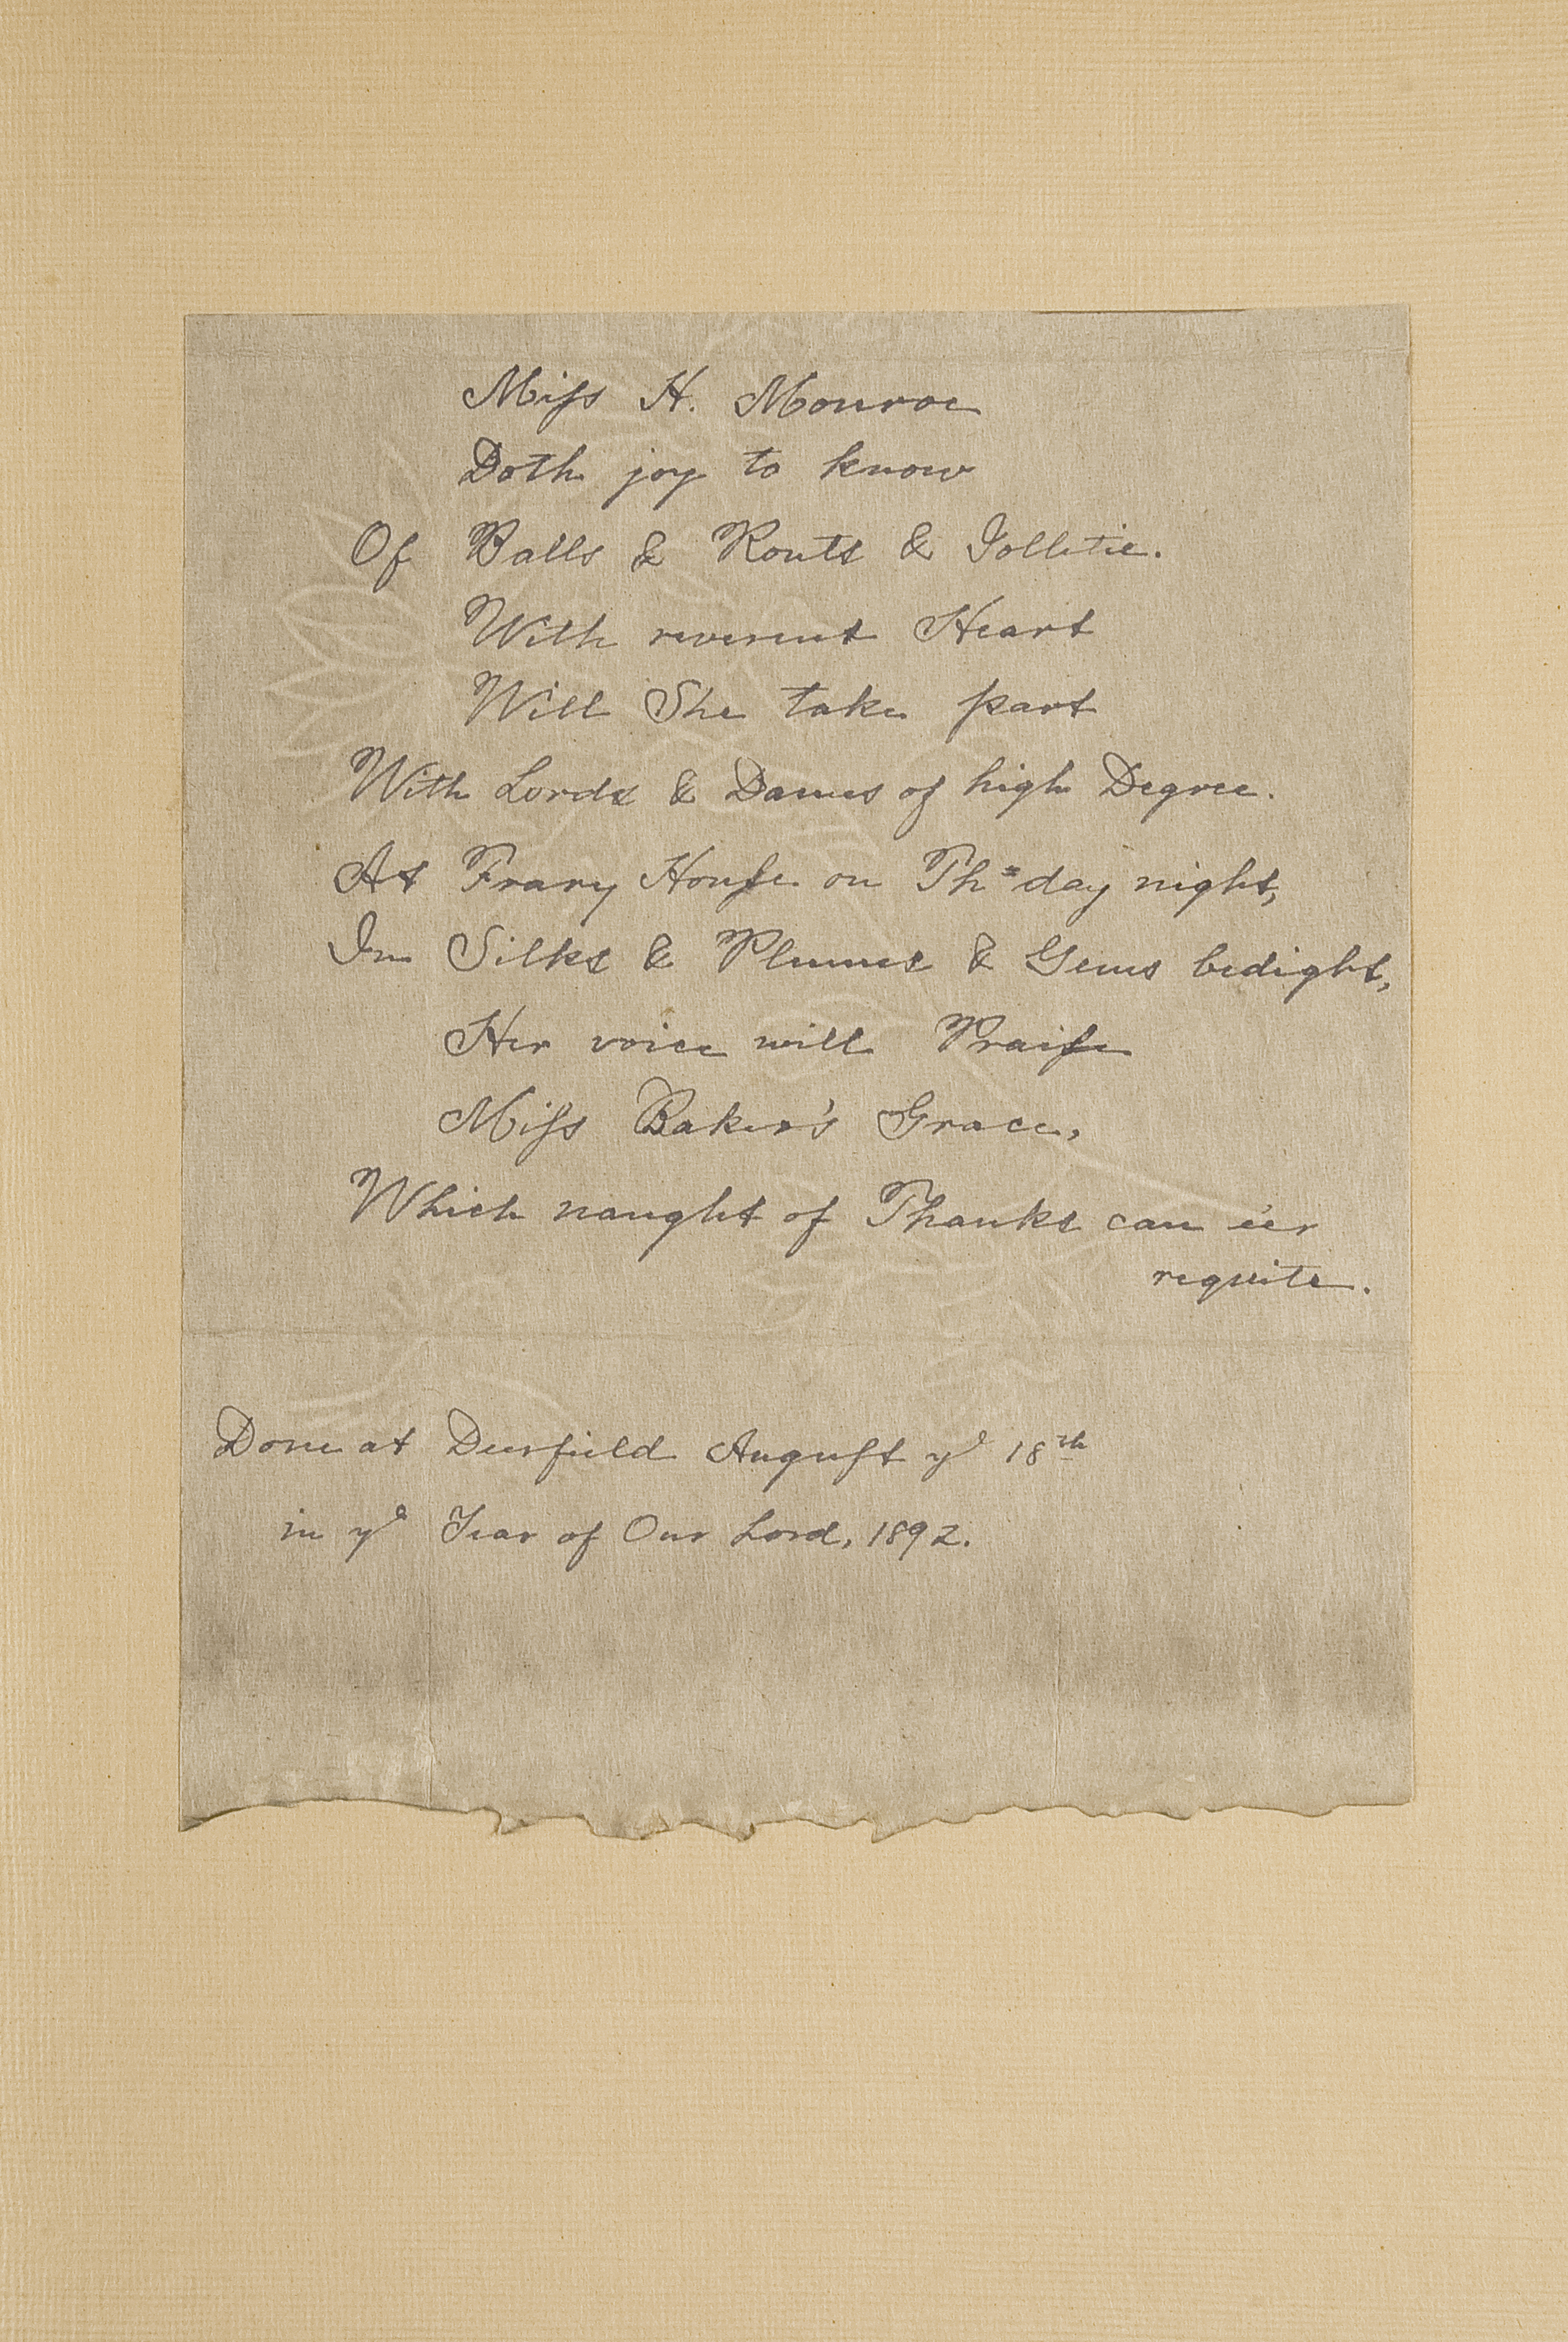 Miſs H. Monroe
Doth joy to know
Of Balls & Routs & Jolletie.
With reverent Heart
Will She take part
With Lords & Dames of high Degree.
At Frary Houſe on Ths day night,
In Silks & Plumes & Gems bedight,
Her voice will Praiſe
Miſs Baker's Grace,
Which naught of Thanks can e'er
requite.
Done at Deerfield Auguſt ye 18th
in ye Year of Our Lord, 1892.